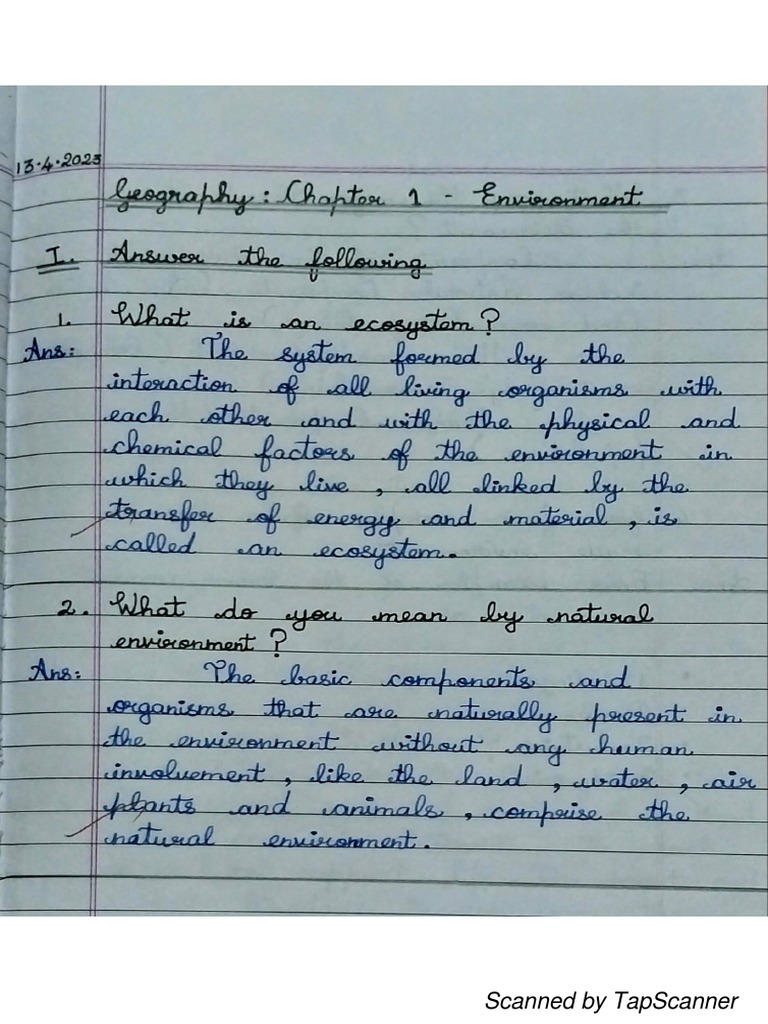 13.4.2023
Geography : Chapter 1 - Environment
I. Answer the following
1. What is an ecosystem ?
Ans: The system formed by the
interaction of all living organisms with
each other and with the physical and
chemical factors of the environment in
which they live , all linked by the
transfer of energy and material , is
called an ecosystem.
2. What do you mean by natural
environment ?
Ans: The basic components and
organisms that are naturally present in
the environment without any human
involvement , like the land , water , air
plants and animals , comprise the
natural environment.
Scanned by TapScanner